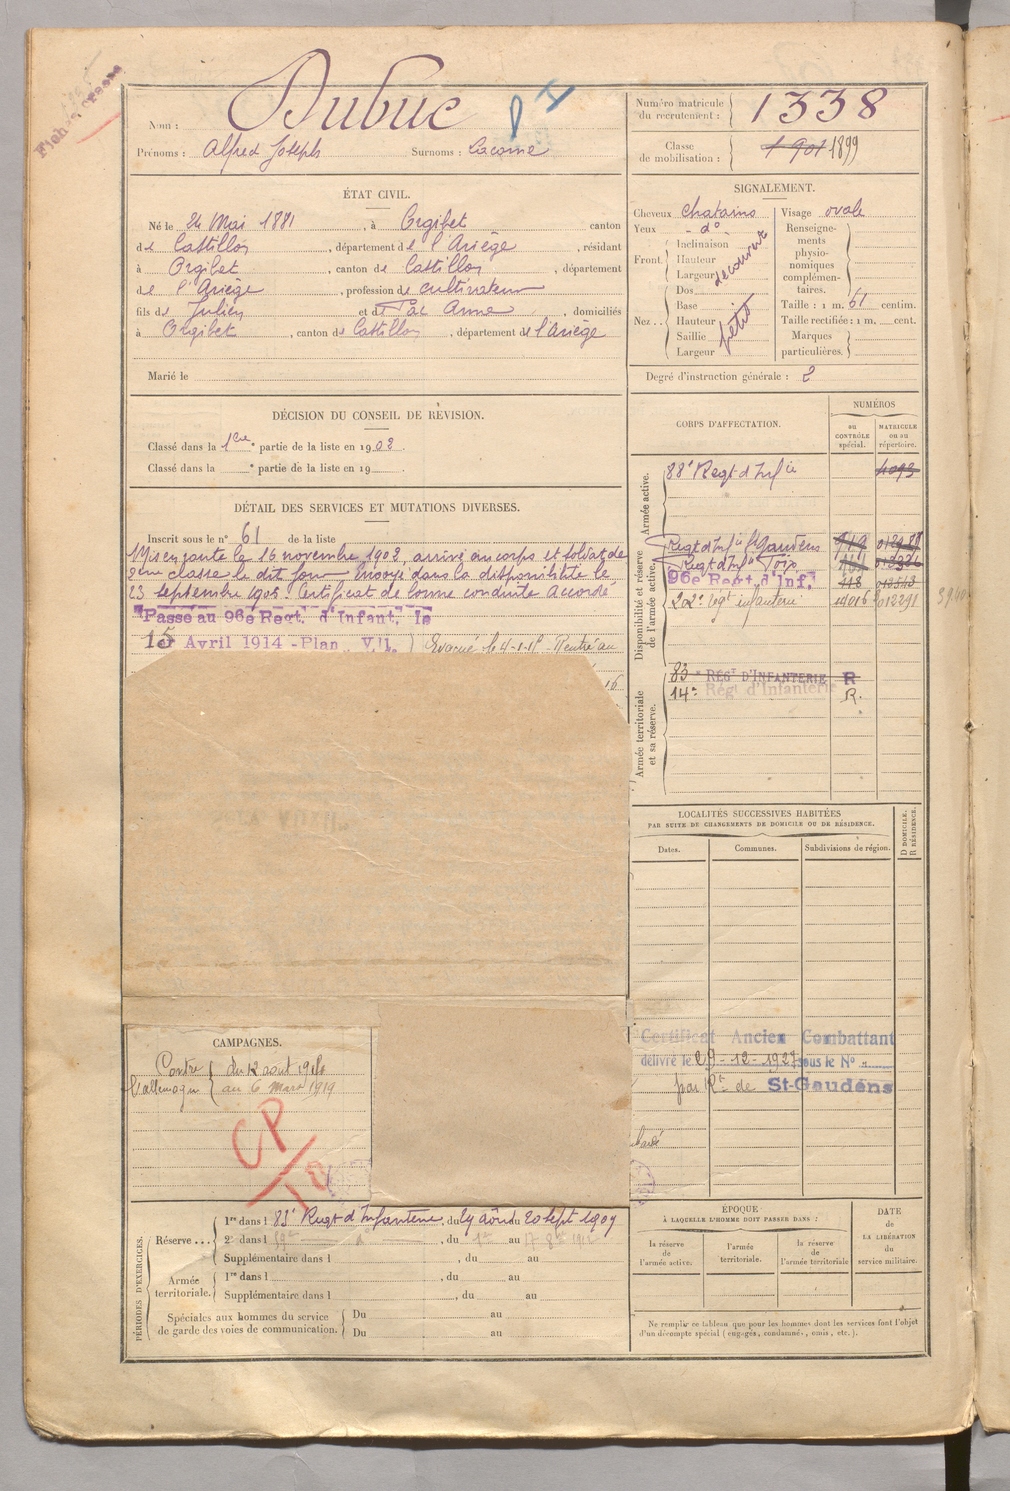 Nom : Dubuc
Prénoms : Alfred Joseph Surnoms : Lacome
Numéro matricule du recrutement : 1338
Classe de mobilisation : 1901 1899
ÉTAT CIVIL.
Né le 24 Mai 1881, à Orgibet, canton
de Castillon, département de l'Ariège, résidant
à Orgibet, canton de Castillon, département
de l'Ariège, profession de cultivateur
fils de Julien et de Anne, domiciliés
à Orgibet, canton de Castillon, département de l'Ariège
Marié le
SIGNALEMENT.
Cheveux chatains
Yeux - d°
Front. Inclinaison
Hauteur
Largeur
découvert
Nez.. Dos
Base
Hauteur
Saillie
Largeur
petit
Visage ovale
Renseignements physionomiques complémentaires.
Taille : 1 m. 61 centim.
Taille rectifiée : 1 m. cent.
Marques particulières.
Degré d'instruction générale : 2
DÉCISION DU CONSEIL DE RÉVISION.
Classé dans la 1ere partie de la liste en 1902.
Classé dans la e partie de la liste en 19
DÉTAIL DES SERVICES ET MUTATIONS DIVERSES.
Inscrit sous le n° 61 de la liste
Mis en route le 16 novembre 1902, arrivé au corps et soldat de
2eme classe le dit jour. Envoyé dans la disponibilité le
23 septembre 1905. Certificat de bonne conduite Accordé
Passé au 96e Regt. d'Infant. le
15 Avril 1914 - Plan
Evacué le Rentré au
16
CORPS D'AFFECTATION.
NUMÉROS
au CONTRÔLE spécial.
MATRICULE ou au répertoire.
Armée active.
88e Regt d'Infie
4093
Disponibilité et réserve de l'armée active.
Regt d'Infie St Gaudens
Regt d'Infie Foix
96e Regt d'Inf.
202e régt infanterie
Armée territoriale et sa réserve.
83e RÉGT D'INFANTERIE R
14e Régt d'Infanterie R.
LOCALITÉS SUCCESSIVES HABITÉES
PAR SUITE DE CHANGEMENTS DE DOMICILE OU DE RÉSIDENCE.
Dates.
Communes.
Subdivisions de région.
D DOMICILE.
R RÉSIDENCE.
Certificat Ancien Combattant
délivré le 29-12-1927 sous le N°
par de St-Gaudens
CAMPAGNES.
Contre l'allemagne du 12 août 1914
au 6 mars 1919
CP
PÉRIODES D'EXERCICES.
Réserve... 1re dans l 83e Regt d'Infanterie, du 29 août au 20 sept 1907
2e dans l , du au
Supplémentaire dans l , du au
Armée territoriale. 1re dans l , du au
Supplémentaire dans l , du au
Spéciales aux hommes du service de garde des voies de communication. Du au
Du au
ÉPOQUE
À LAQUELLE L'HOMME DOIT PASSER DANS :
la réserve de l'armée active.
l'armée territoriale.
la réserve de l'armée territoriale
DATE de LA LIBÉRATION du service militaire.
Ne remplir ce tableau que pour les hommes dont les services font l'objet
d'un décompte spécial (engagés, condamnés, omis, etc.).